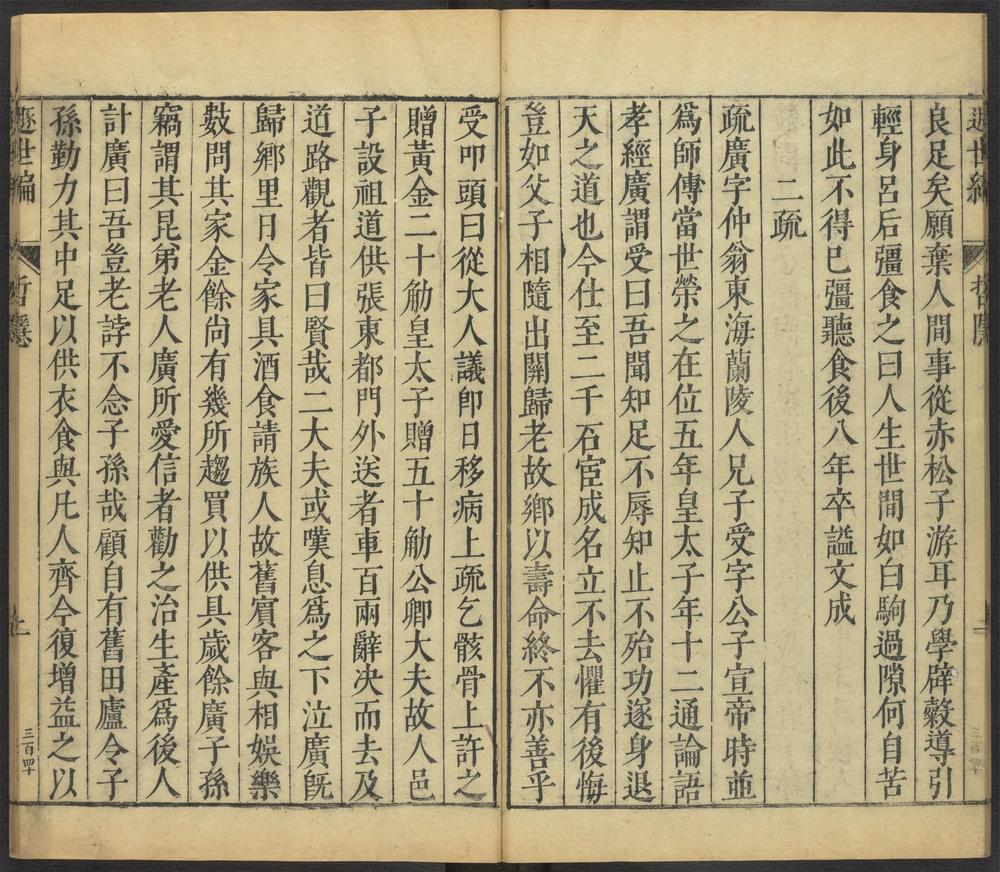 良足矣願棄人間事從赤松子游耳乃學辟穀導引
輕身呂后彊食之曰人生世間如白駒過隙何自苦
如此不得已彊聽食後八年卒謚文成
二疏
疏廣字仲翁東海蘭陵人兄子受字公子宣帝時並
爲師傅當世榮之在位五年皇太子年十二通論語
孝經廣謂受曰吾聞知足不辱知止不殆功遂身退
天之道也今仕至二千石宦成名立不去懼有後悔
豈如父子相隨出關歸老故鄉以壽命終不亦善乎
受叩頭曰從大人議卽日移病上疏乞骸骨上許之
贈黃金二十觔皇太子贈五十觔公卿大夫故人邑
子設祖道供張東都門外送者車百兩辭決而去及
道路觀者皆曰賢哉二大夫或嘆息爲之下泣廣旣
歸鄉里日令家具酒食請族人故舊賓客與相娛樂
數問其家金餘尚有幾所趨買以供具歲餘廣子孫
竊謂其昆弟老人廣所愛信者勸之治生產爲後人
計廣曰吾豈老誖不念子孫哉顧自有舊田廬令子
孫勤力其中足以供衣食與凡人齊今復增益之以
遯世編
哲隱
三百四十